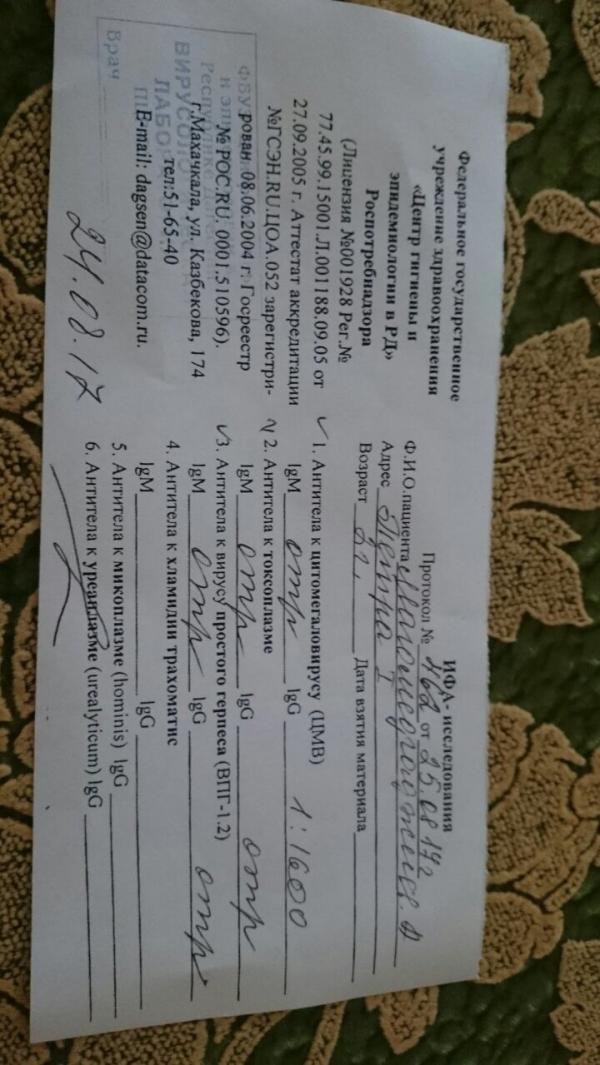 Федеральное государственное
учреждение здравоохранения
«Центр гигиены и
эпидемиологии в РД»
Роспотребнадзора
(Лицензия №001928 Рег.№
77.45.99.15001.Л.001188.09.05 от
27.09.2005 г. Аттестат аккредитации
№ГСЭН.RU.ЦОА.052 зарегистри-
рован 08.06.2004 г. Госреестр
№ РОС.RU. 0001.510596).
г.Махачкала, ул. Казбекова, 174
тел:51-65-40
E-mail: dagsen@datacom.ru.
24.08.17
ИФА- исследования
Протокол № 462 от 25.08 17г
Ф.И.О.пациента
Адрес
Возраст Дата взятия материала
✓ 1. Антитела к цитомегаловирусу (ЦМВ)
IgM отр IgG 1:1600
✓ 2. Антитела к токсоплазме
IgM отр IgG отр
✓ 3. Антитела к вирусу простого герпеса (ВПГ-1.2)
IgM отр IgG отр
4. Антитела к хламидии трахоматис
IgM IgG
5. Антитела к микоплазме (hominis) IgG
6. Антитела к уреаплазме (urealyticum) IgG
ФБУ
ВИРУСОЛО
ЛАБО
Врач